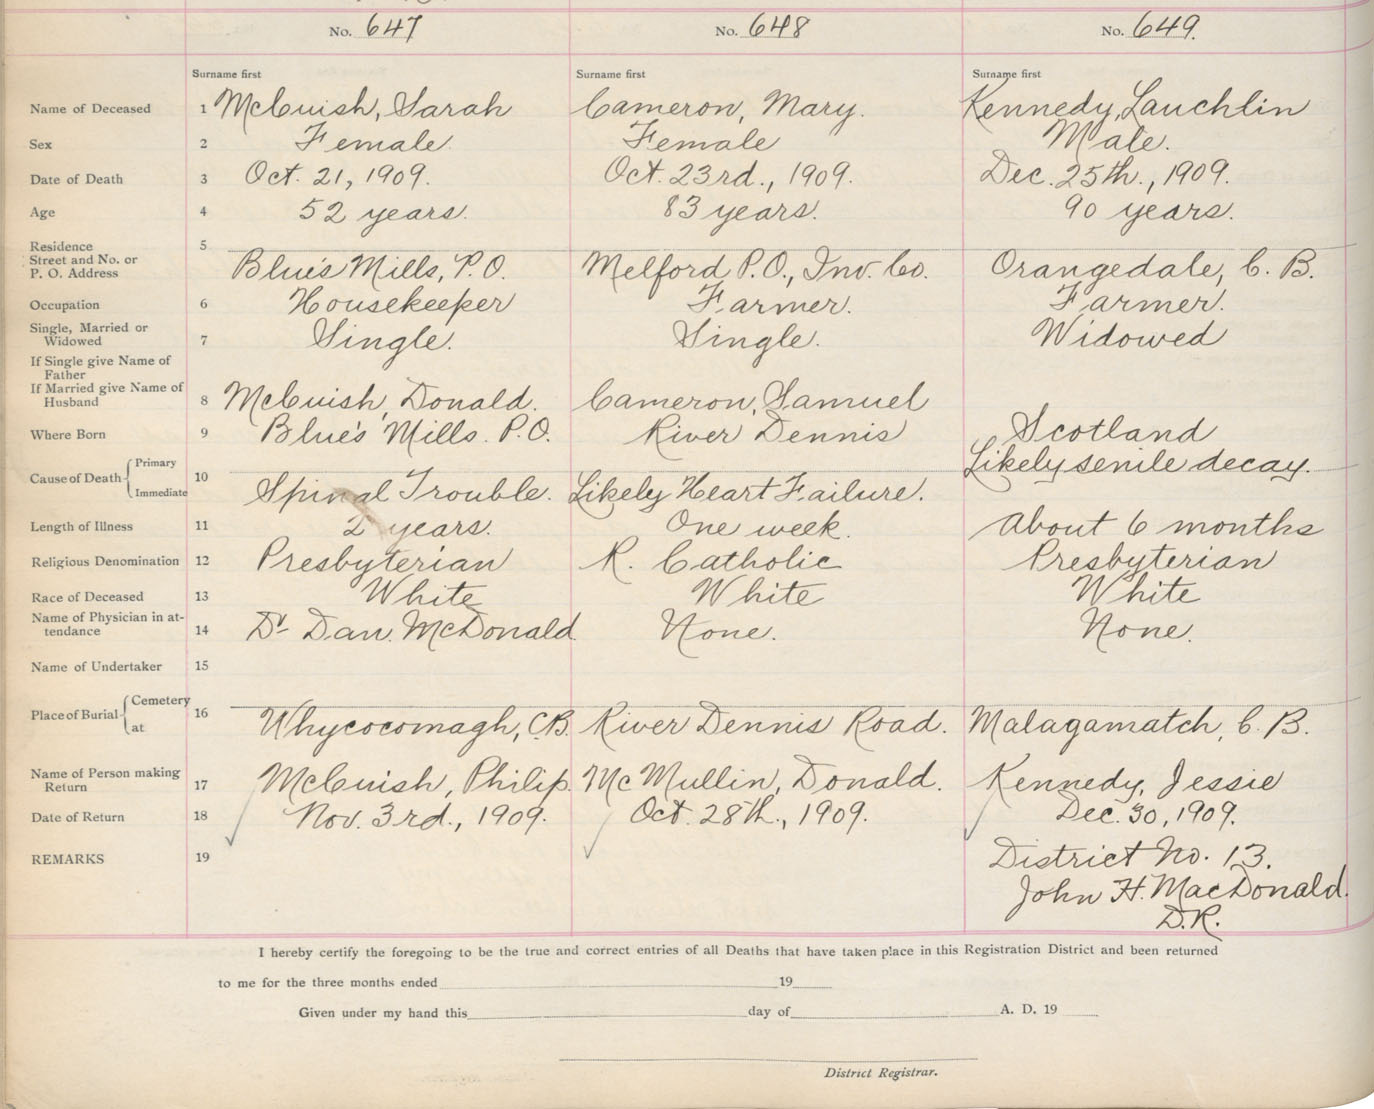 No. 647 No. 648 No. 649.
Surname first Surname first Surname first
Name of Deceased 1 McCuish, Sarah Cameron, Mary. Kennedy, Lauchlin
Sex 2 Female. Female Male.
Date of Death 3 Oct. 21, 1909. Oct. 23rd., 1909. Dec. 25th., 1909.
Age 4 52 years. 83 years. 90 years.
Residence 5
Street and No. or
P. O. Address Blue's Mills, P.O. Melford P.O., Inv. Co. Orangedale, C. B.
Occupation 6 Housekeeper Farmer. Farmer.
Single, Married or
Widowed 7 Single. Single. Widowed
If Single give Name of
Father
If Married give Name of
Husband 8 McCuish, Donald. Cameron, Samuel
Where Born 9 Blue's Mills. P.O. River Dennis Scotland
Cause of Death Primary Likely senile decay.
10
Immediate Spinal Trouble. Likely Heart Failure.
Length of Illness 11 2 years. One week. About 6 months
Religious Denomination 12 Presbyterian R. Catholic Presbyterian
Race of Deceased 13 White White White
Name of Physician in at-
tendance 14 Dr Dan. McDonald None. None.
Name of Undertaker 15
Place of Burial Cemetery
16
at Whycocomagh, C.B. River Dennis Road. Malagamatch, C. B.
Name of Person making
Return 17 McCuish, Philip. McMullin, Donald. Kennedy, Jessie
Date of Return 18 Nov. 3rd., 1909. Oct. 28th., 1909. Dec. 30, 1909.
REMARKS 19 District No. 13.
John H. MacDonald.
D.R.
I hereby certify the foregoing to be the true and correct entries of all Deaths that have taken place in this Registration District and been returned
to me for the three months ended 19
Given under my hand this day of A. D. 19
District Registrar.